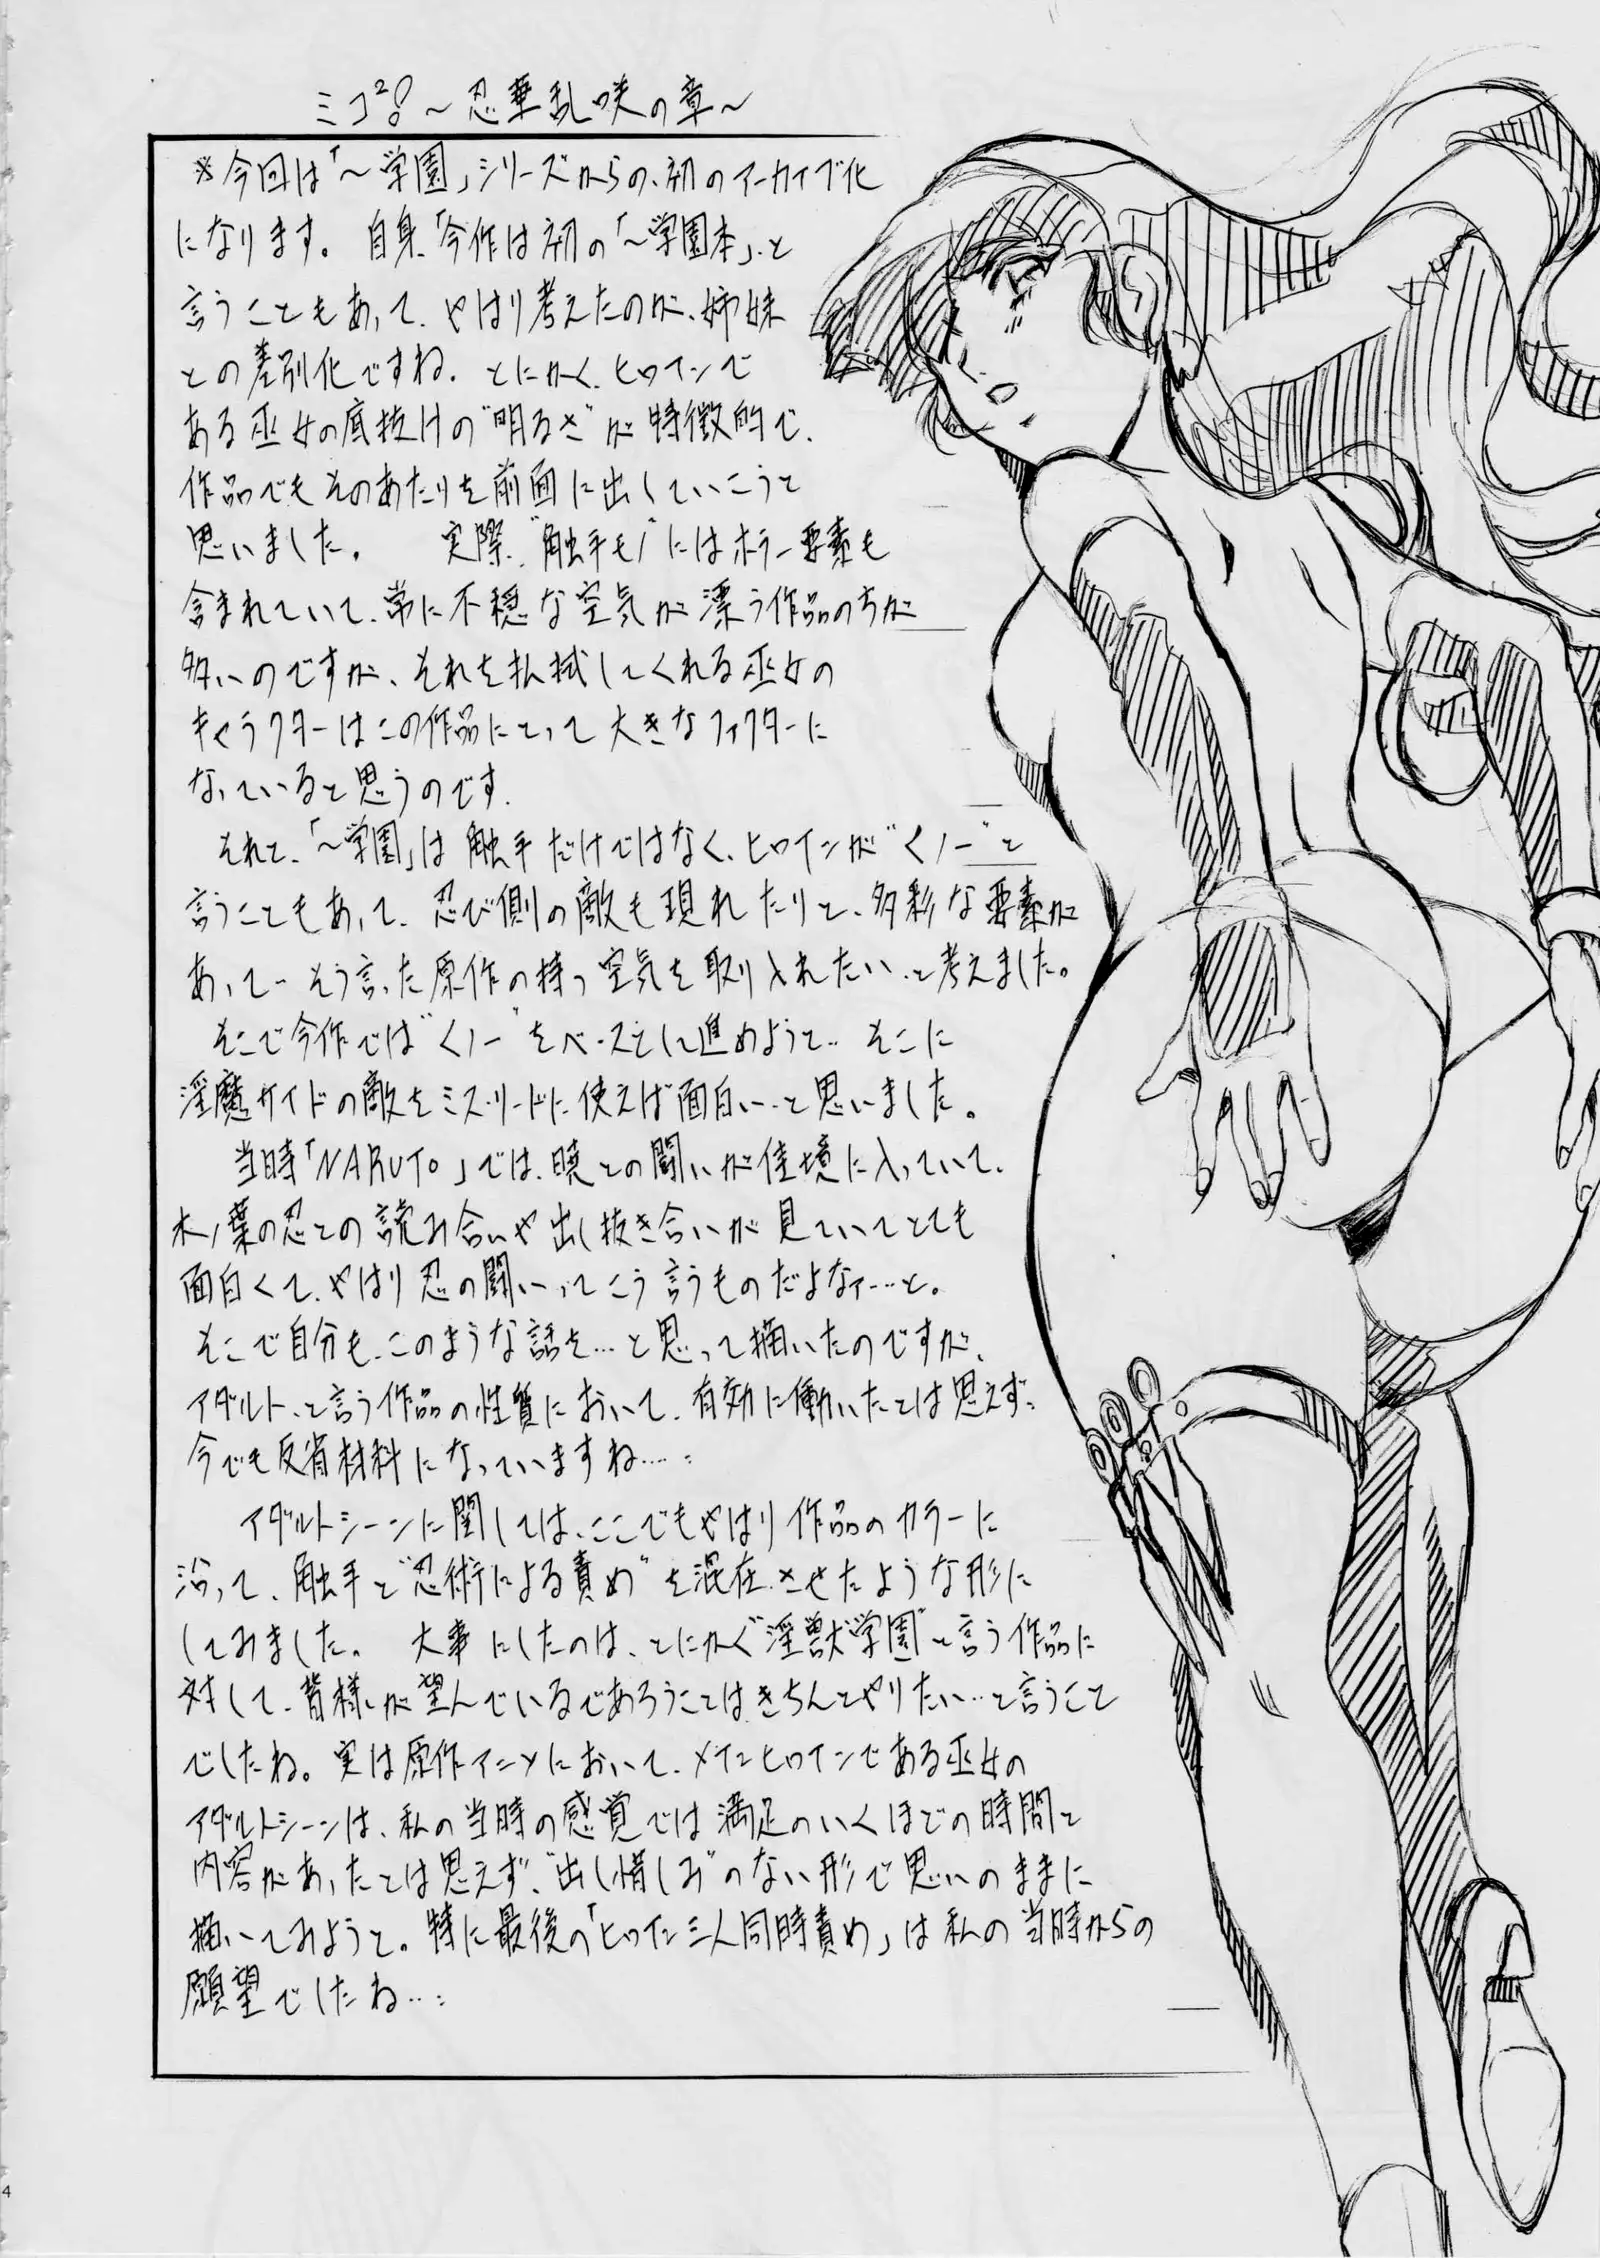 ミコ²! ~忍華乱咲の章~
※今回は「~学園」シリーズからの、初のアーカイブ化
になります。 自身、「今作は初の「~学園本」、と
言うこともあって、やはり考えたのが、姉妹
との差別化ですね。とにかく、ヒロインで
ある巫女の底抜けの"明るさ"が特徴的で、
作品でもそのあたりを前面に出していこうと
思いました。 実際、"触手モノ"にはホラー要素も
含まれていて、常に不穏な空気が漂う作品のちが
多いのですが、それを払拭してくれる巫女の
キャラクターはこの作品にとって大きなファクターに
なっていると思うのです。
それと、「~学園」は触手だけではなく、ヒロインが"くノ一"と
言うこともあって、忍び側の敵も現れたりと、多彩な要素が
あって…そう言った原作の持つ空気を取り入れたい…と考えました。
そこで今作では"くノ一"をベースとして進めようと… そこに
淫魔サイドの敵をミス・リードに使えば面白い…と思いました。
当時「NARUTO」では、暁との闘いが佳境に入っていて、
木ノ葉の忍との読み合いや出し抜き合いが見ていてとても
面白くて、やはり忍の闘いってこう言うものだよなァ…と。
そこで自分も、このような話を…と思って描いたのですが、
アダルト、と言う作品の性質において、有効に働いたとは思えず…
今でも反省材料になっていますね…:
アダルトシーンに関しては、ここでもやはり作品のカラーに
沿って、触手と"忍術による責め"を混在させたような形に
してみました。 大事にしたのは、とにかく"淫獣学園"と言う作品に
対して、皆様が望んでいるであろうことはきちんとやりたい…と言うこと
でしたね。実は原作アニメにおいて、メインヒロインである巫女の
アダルトシーンは、私の当時の感覚では満足のいくほどの時間と
内容があったとは思えず、"出し惜しみ"のない形で思いのままに
描いてみようと。特に最後の「ヒロイン三人同時責め」は私の当時からの
願望でしたね…:
4